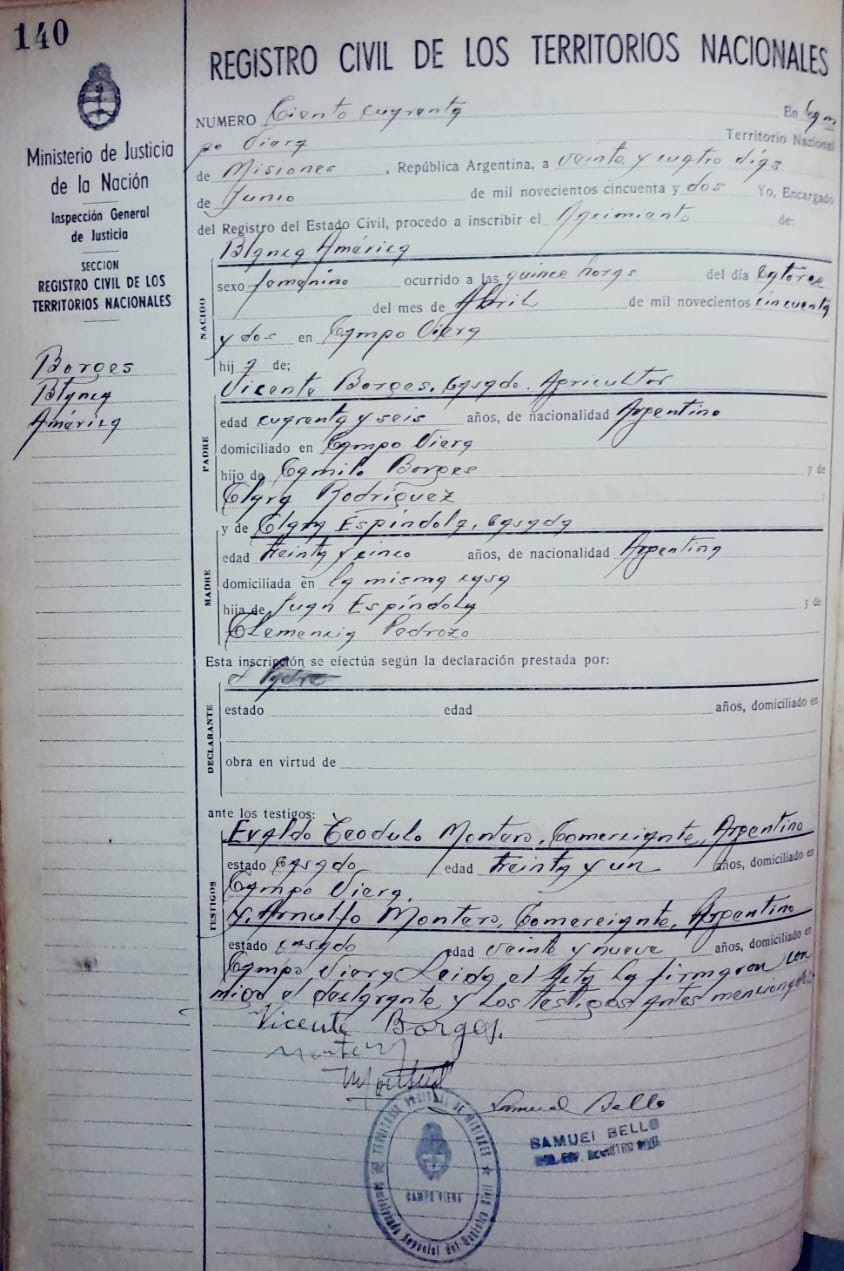 140
REGISTRO CIVIL DE LOS TERRITORIOS NACIONALES
Ministerio de Justicia
de la Nación
Inspección General
de Justicia
SECCION
REGISTRO CIVIL DE LOS
TERRITORIOS NACIONALES
Borges
Blanca
América
NUMERO Ciento cuarenta En Cam
po Viera Territorio Nacional
de Misiones, República Argentina, a veinte y cuatro días
de Junio de mil novecientos cincuenta y dos Yo, Encargado
del Registro del Estado Civil, procedo a inscribir el Nacimiento de:
NACIDO
Blanca América
sexo femenino ocurrido a las quince horas del día Catorce
del mes de Abril de mil novecientos cincuenta
y dos en Campo Viera
hija de;
PADRE
Vicente Borges, Casado. Agricultor
edad cuarenta y seis años, de nacionalidad Argentino
domiciliado en Campo Viera
hijo de Camilo Borges y de
Clara Rodríguez
MADRE
y de Clara Espíndola, casada
edad treinta y cinco años, de nacionalidad Argentina
domiciliada en la misma casa
hija de Juan Espíndola y de
Clemencia Pedrozo
Esta inscripción se efectúa según la declaración prestada por:
DECLARANTE
el Padre
estado edad años, domiciliado en
obra en virtud de
ante los testigos:
TESTIGOS
Evaldo Teodulo Montero, Comerciante, Argentino
estado casado edad treinta y un años, domiciliado en
Campo Viera.
Y, Arnulfo Montero, Comerciante, Argentino
estado casado edad veinte y nueve años, domiciliado en
Campo Viera Leida el Acta la firmaron con
migo el declarante y los testigos antes mencionados
Vicente Borges.
Samuel Bello
SAMUEL BELLO
TERRITORIO NACIONAL DE MISIONES
CAMPO VIERA